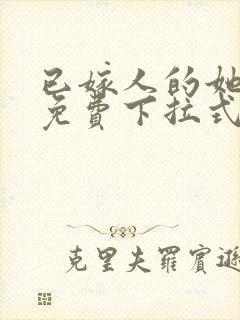 已嫁人的她
免費下拉式
克里夫羅賓遜